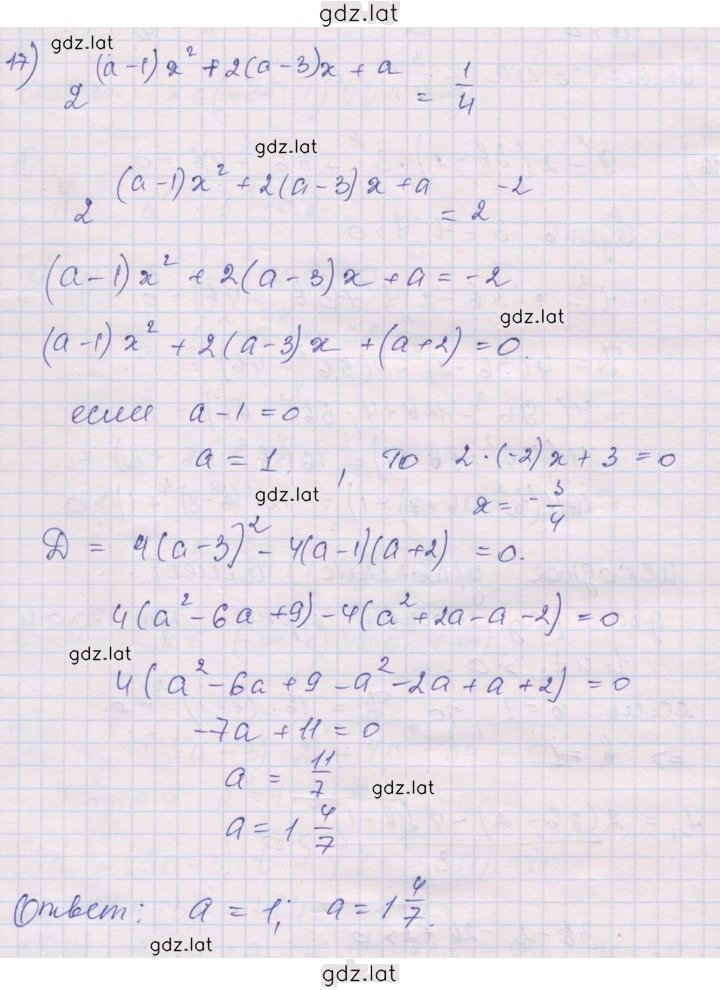 gdz.lat
17) gdz.lat
2^((a-1)x²+2(a-3)x+a) = 1/4
gdz.lat
2^((a-1)x²+2(a-3)x+a) = 2^(-2)
(a-1)x²+2(a-3)x+a=-2
gdz.lat
(a-1)x²+2(a-3)x+(a+2)=0.
если a-1=0
a=1. , то 2·(-2)x+3=0
gdz.lat x=-3/4
Д = 4(a-3)²-4(a-1)(a+2)=0.
4(a²-6a+9)-4(a²+2a-a-2)=0
gdz.lat
4(a²-6a+9-a²-2a+a+2)=0
-7a+11=0
a = 11/7
gdz.lat
a=1 4/7
Ответ: a=1; a=1 4/7.
gdz.lat
gdz.lat